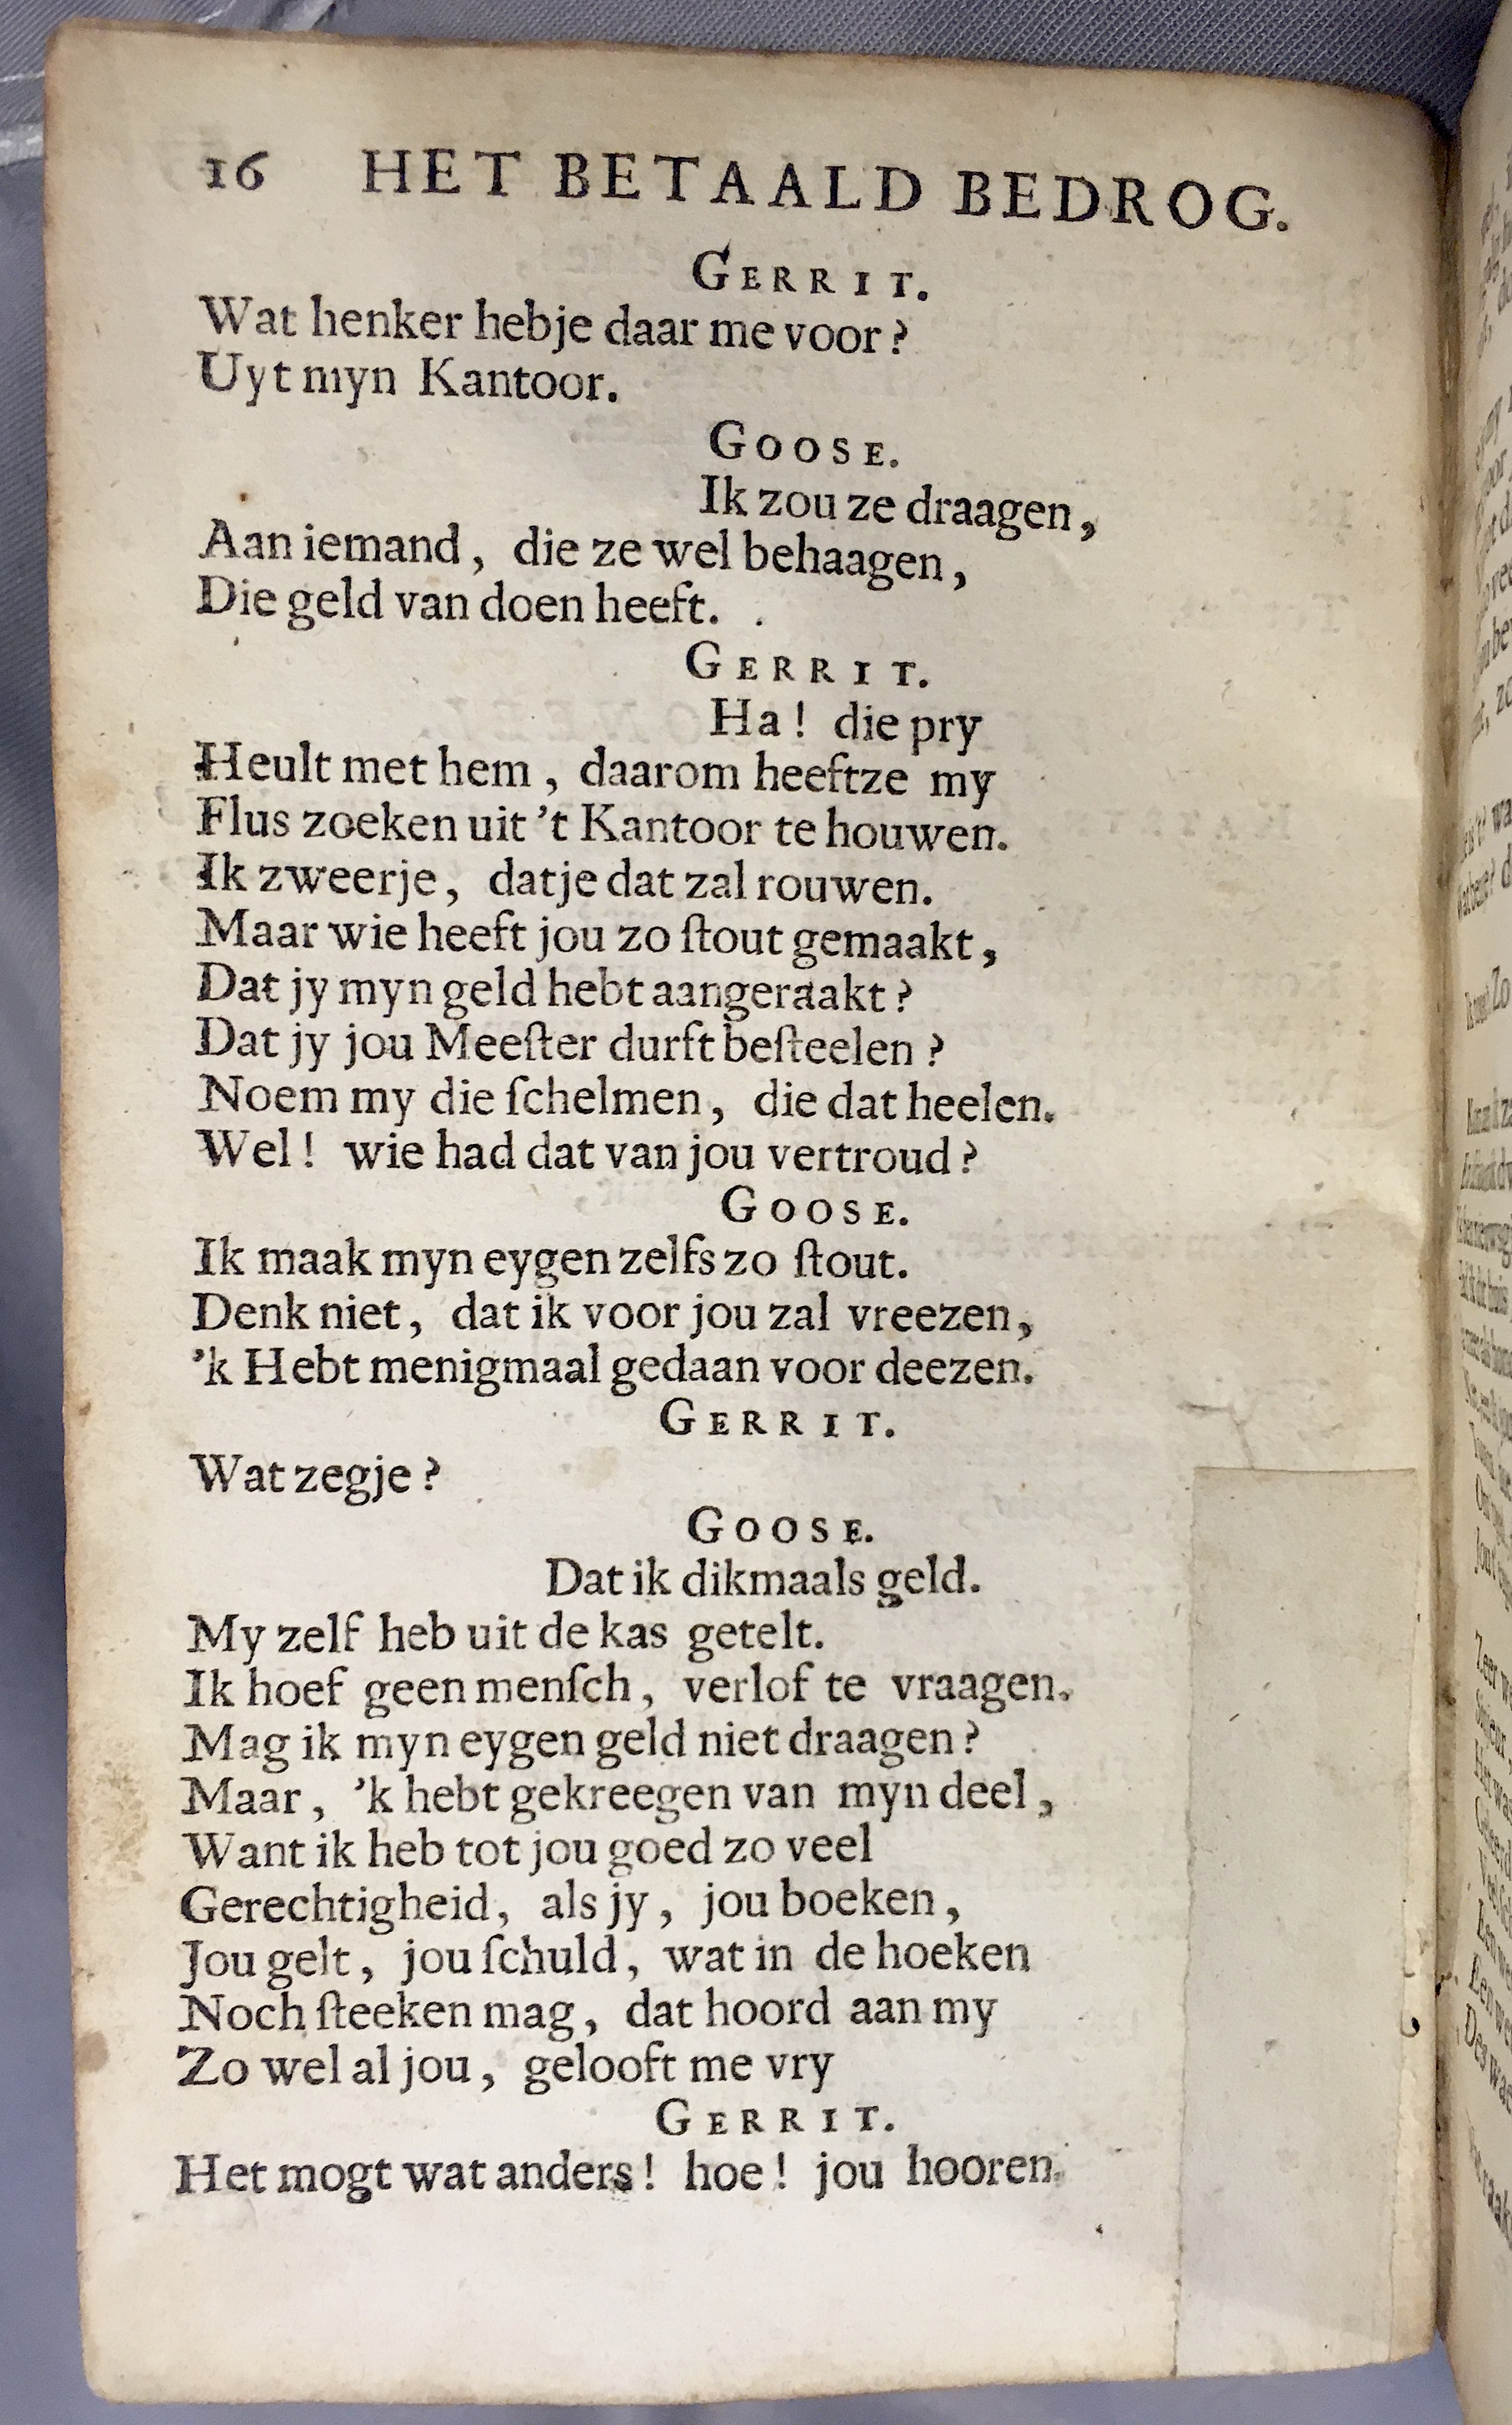 16 HET BETAALD BEDROG.
GERRIT.
Wat henker hebje daar me voor?
Uyt myn Kantoor.
GOOSE.
Ik zou ze draagen,
Aan iemand, die ze wel behaagen,
Die geld van doen heeft.
GERRIT.
Ha! die pry
Heult met hem, daarom heeftze my
Flus zoeken uit 't Kantoor te houwen.
Ik zweerje, datje dat zal rouwen.
Maar wie heeft jou zo ſtout gemaakt,
Dat jy myn geld hebt aangeraakt?
Dat jy jou Meeſter durft beſteelen?
Noem my die ſchelmen, die dat heelen.
Wel! wie had dat van jou vertroud?
GOOSE.
Ik maak myn eygen zelfs zo ſtout.
Denk niet, dat ik voor jou zal vreezen,
'k Hebt menigmaal gedaan voor deezen.
GERRIT.
Wat zegje?
GOOSE.
Dat ik dikmaals geld.
My zelf heb uit de kas getelt.
Ik hoef geen menſch, verlof te vraagen.
Mag ik myn eygen geld niet draagen?
Maar, 'k hebt gekreegen van myn deel,
Want ik heb tot jou goed zo veel
Gerechtigheid, als jy, jou boeken,
Jou gelt, jou ſchuld, wat in de hoeken
Noch ſteeken mag, dat hoord aan my
Zo wel al jou, gelooft me vry
GERRIT.
Het mogt wat anders! hoe! jou hooren.